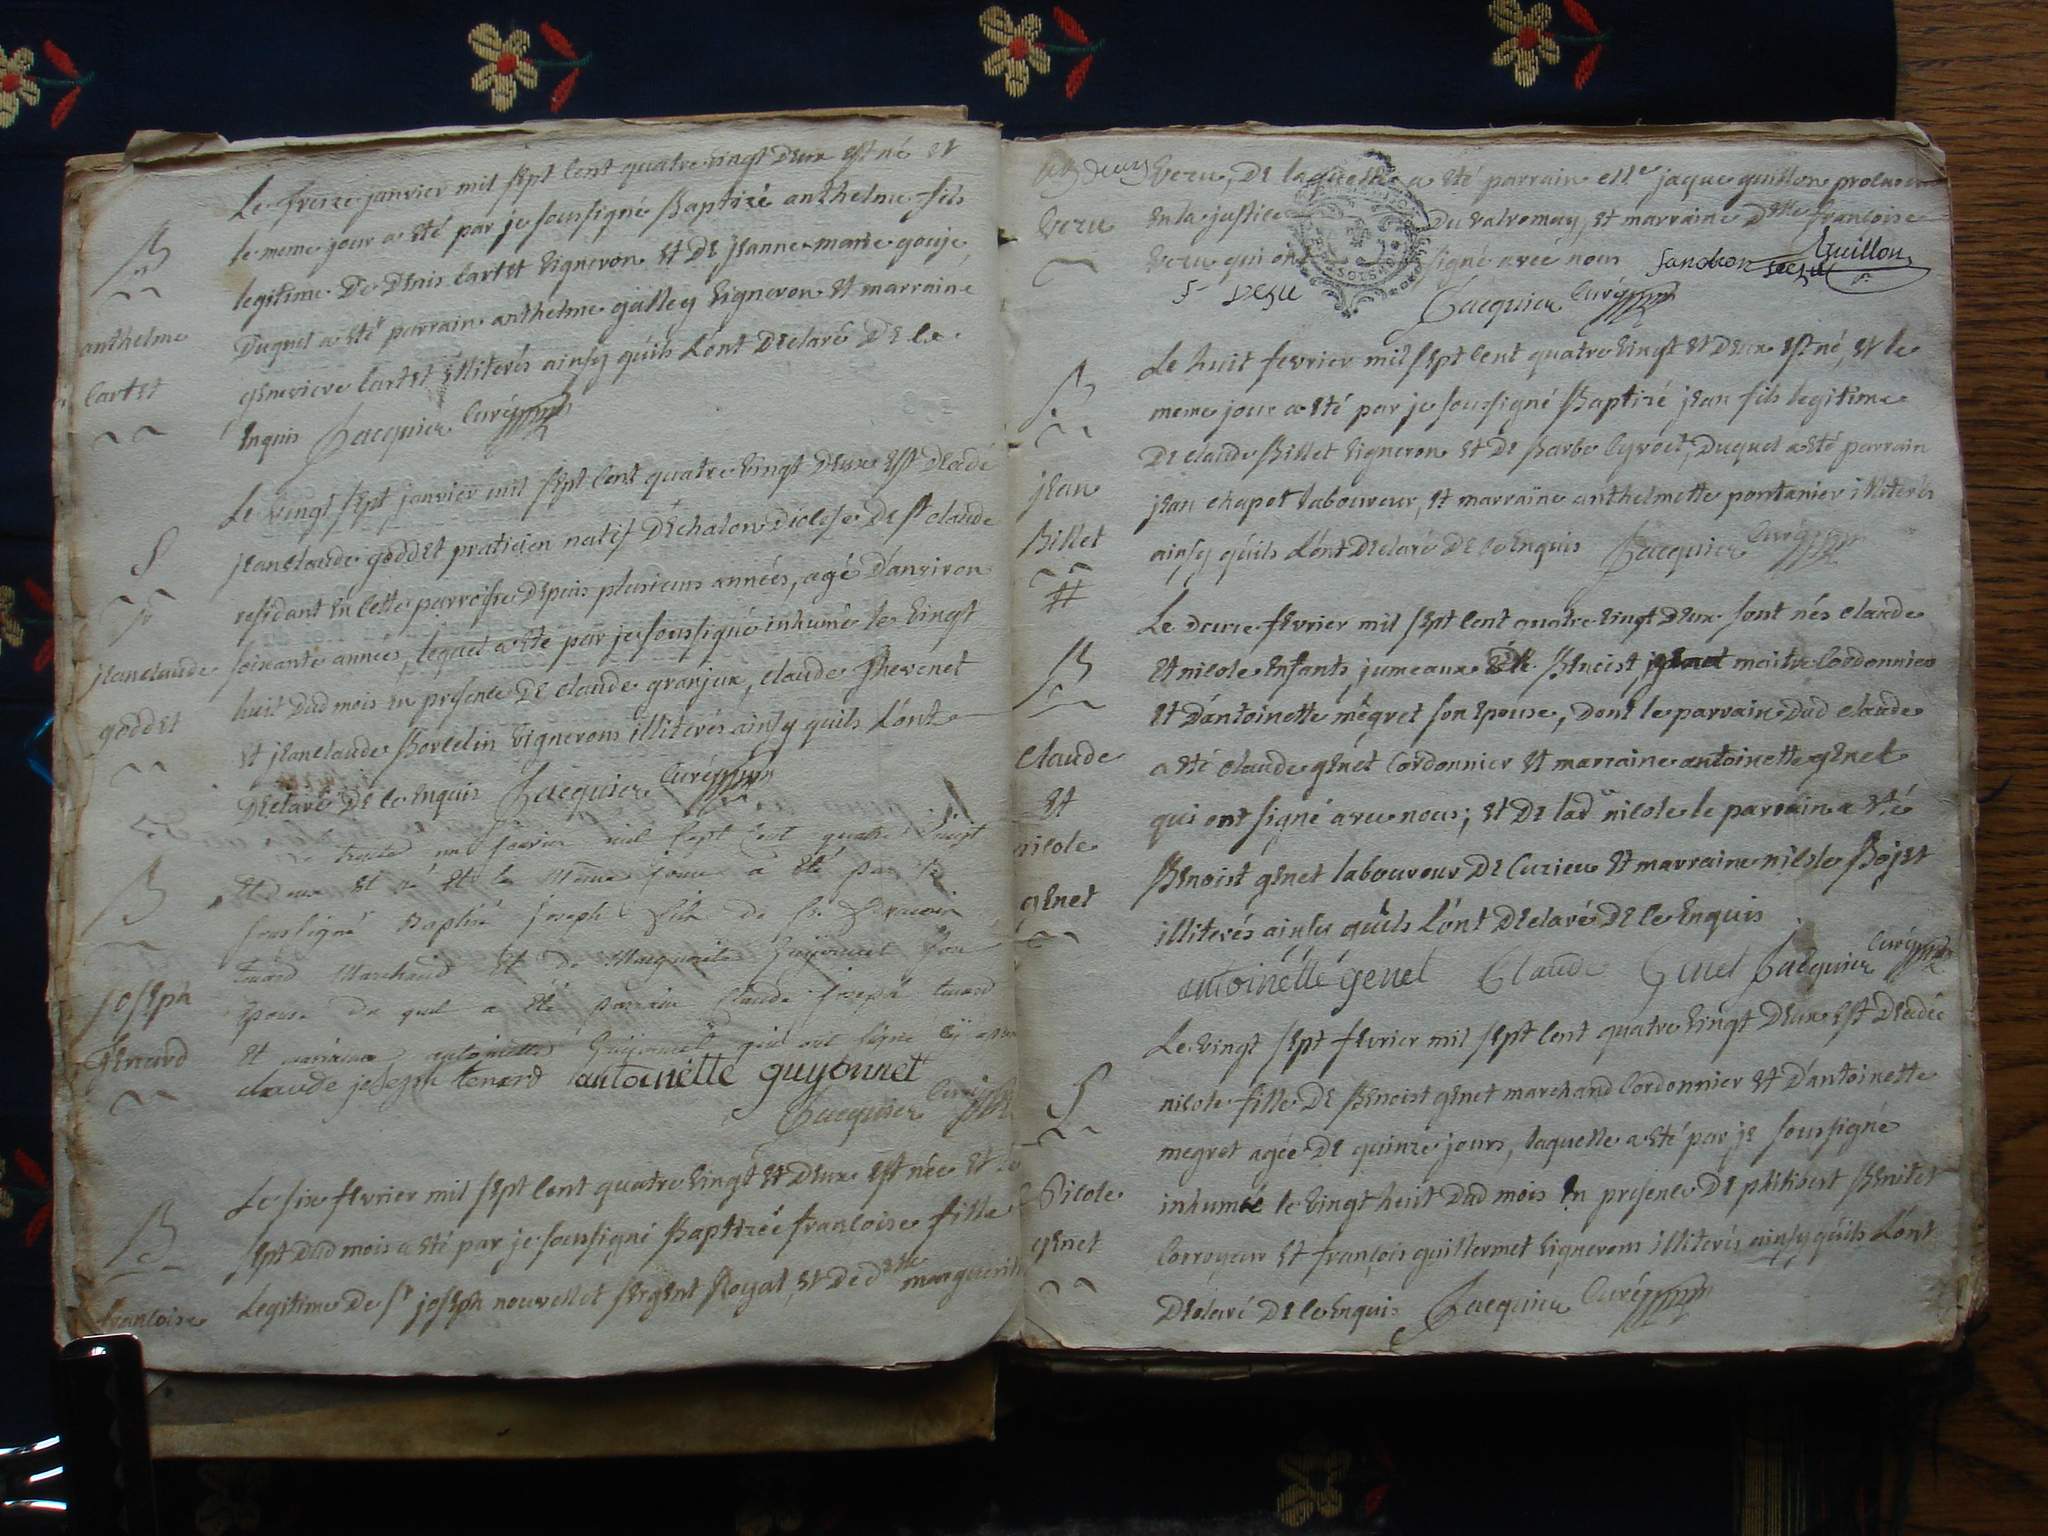 Le treize janvier mil sept cent quatre vingt deux est né et
le meme jour a eté par je soussigné Baptizé anthelme fils
legitime de denis cartet vigneron et de jeanne marie gouje
duquel a eté parrain anthelme galley vigneron et marraine
genevieve cartet illiterés ainsy quils L'ont declaré de ce
enquis Jacquier Curé
B
anthelme
cartet
Le vingt sept janvier mil sept cent quatre vingt deux est decedé
jeanclaude goddet praticien natif d'Echalon diocese de st claude
residant en cette parroisse depuis plusieurs années, agé d'anviron
soixante années, lequel a eté par je soussigné inhumé le vingt
huit dud mois en presence de claude granjux, claude Thevenet
et jeanclaude Borcelin vignerons illiterés ainsy quils L'ont
declaré de ce enquis Jacquier Curé
S
jeanclaude
goddet
Le trente un janvier mil sept cent quatre vingt
et deux est né et le même jour a été par je
soussigné Baptisé joseph fils de
tenard Marchand et de Marguerite Guyonnet son
epouse du quel a été parrain Claude joseph tenard
et marraine antoinette Guyonnet qui ont signé
claude joseph tenard antoinétté guyonnet
Jacquier Curé
B
joseph
Tenard
Le six fevrier mil sept cent quatre vingt et deux est née et le
sept dud mois a eté par je soussigné Baptizée francoise fille
Legitime de sr joseph nouvellet sergent Royal, et de dlle marguerite
B
francoise
vezu, de laquelle a eté parrain jaque guillon procureur
en la justice du valromay, et marraine Dlle francoise
vezu qui ont signé avec nous Guillon
Jacquier Curé
vezu
Le huit fevrier mil sept cent quatre vingt et deux est né, et le
meme jour a eté par je soussigné Baptizé jean fils legitime
de claude Billet vigneron et de Barbe Cyvoct, duquel a eté parrain
jean chapot laboureur, et marraine anthelmette pontanier illiterés
ainsy quils L'ont declaré de ce enquis Jacquier Curé
B
jean
Billet
#
Le douze fevrier mil sept cent quatre vingt deux sont nés claude
et nicole enfants jumeaux de Benoist genet maitre Cordonnier
et d'antoinette mégret son epouse, dont le parrain dud claude
a eté claude genet Cordonnier et marraine antoinette genet
qui ont signé avec nous; et de lad nicole le parrain a eté
Benoist genet laboureur de Cuzieu et marraine nicole Bojet
illiterés ainsy quils L'ont declaré de ce enquis
antoinétté génet Claude Genet Jacquier Curé
B
claude
et
nicole
genet
Le vingt sept fevrier mil sept cent quatre vingt deux est decedée
nicole fille de Benoist genet marchand Cordonnier et d'antoinette
megret agée de quinze jours, laquelle a eté par je soussigné
inhumée le vingt huit dud mois en presence de philibert Benitet
Corroyeur et françois guillermet vignerons illiterés ainsy quils L'ont
declaré de ce enquis Jacquier Curé
S
Nicole
genet